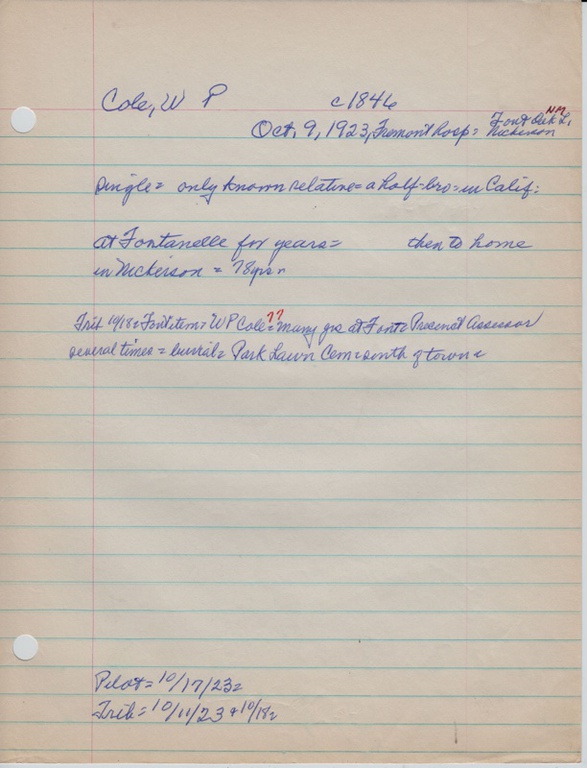 Cole, W P c1846
NM
Oct. 9, 1923, Fremont hosp= Font
Nickerson
single= only known relative= a half-bro= in Calif=
at Fontanelle for years= then to home
in Nickerson = 78yrs=
Trib 10/18= Font item= WP Cole= ?? many yrs at Font= Precinct Assessor
several times= burial= Park Lawn Cem= south of town=
Pilot= 10/17/23=
Trib= 10/11/23 + 10/18=